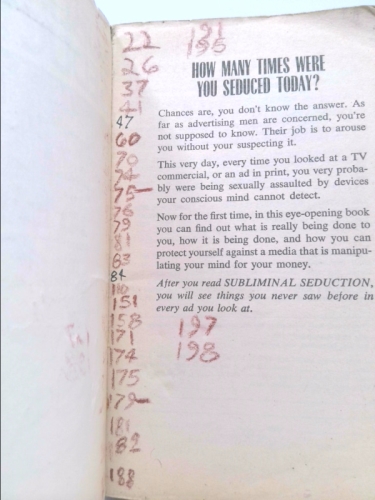 22
26
37
41
47
60
70
74
75-
76
79
81
83
84
110
151
158
171
174
175
179-
181
82
188
195
HOW MANY TIMES WERE
YOU SEDUCED TODAY?
Chances are, you don't know the answer. As
far as advertising men are concerned, you're
not supposed to know. Their job is to arouse
you without your suspecting it.
This very day, every time you looked at a TV
commercial, or an ad in print, you very proba-
bly were being sexually assaulted by devices
your conscious mind cannot detect.
Now for the first time, in this eye-opening book
you can find out what is really being done to
you, how it is being done, and how you can
protect yourself against a media that is manipu-
lating your mind for your money.
After you read SUBLIMINAL SEDUCTION,
you will see things you never saw before in
every ad you look at.
197
198